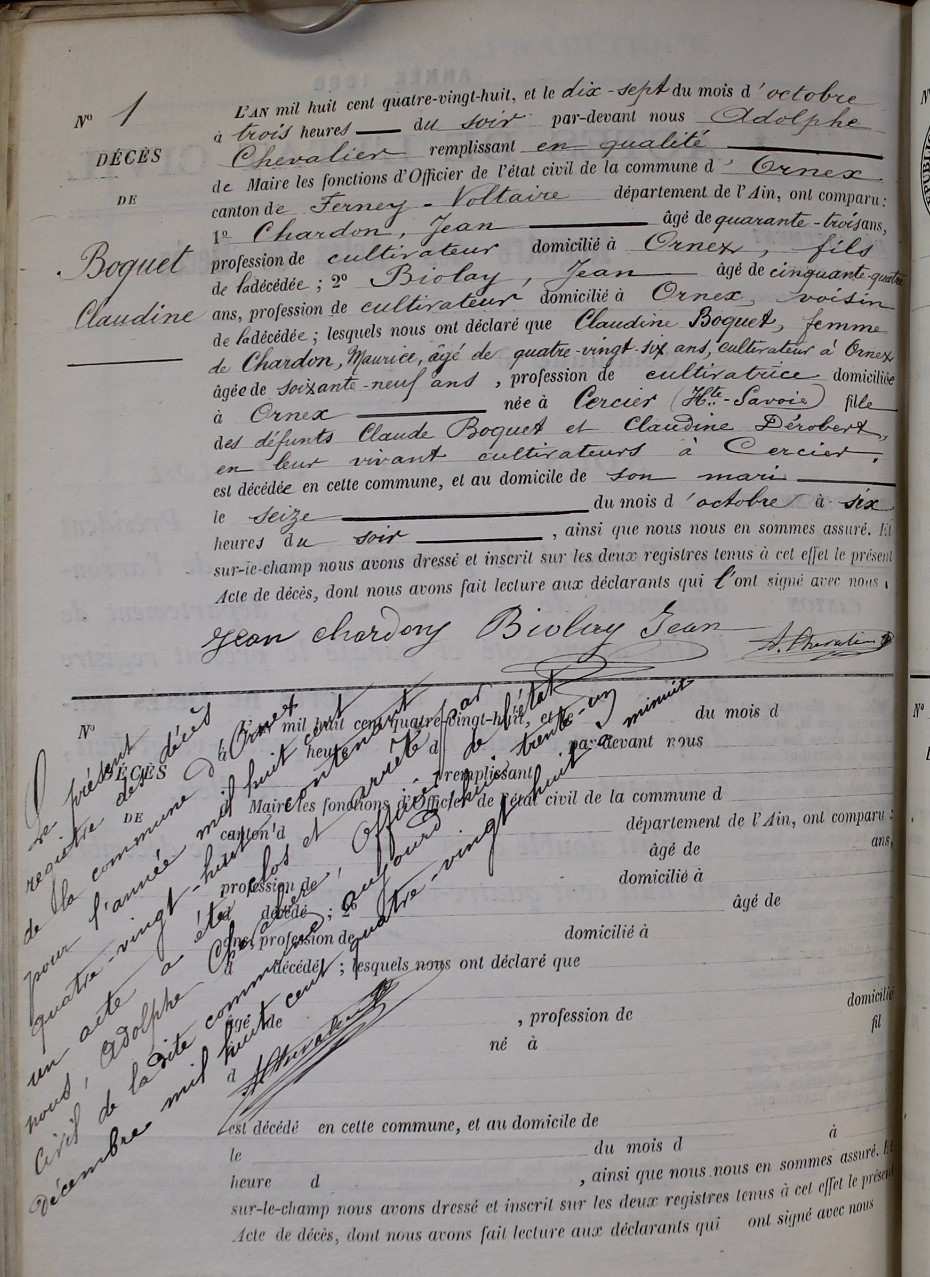 N° 1
DÉCÈS
DE
Boquet
Claudine
L'AN mil huit cent quatre-vingt-huit, et le dix-sept du mois d'octobre
à trois heures du soir par-devant nous Adolphe
Chevalier remplissant en qualité
de Maire les fonctions d'Officier de l'état civil de la commune d'Ornex
canton de Ferney-Voltaire département de l'Ain, ont comparu :
1° Chardon, Jean âgé de quarante-trois ans,
profession de cultivateur domicilié à Ornex, fils
de la décédée ; 2° Biolay, Jean âgé de cinquante-quatre
ans, profession de cultivateur domicilié à Ornex, voisin
de la décédée ; lesquels nous ont déclaré que Claudine Boquet, femme
de Chardon, Maurice, âgé de quatre-vingt-six ans, cultivateur à Ornex
âgée de soixante-neuf ans, profession de cultivatrice domiciliée
à Ornex née à Cercier (Hte-Savoie) fille
des défunts Claude Boquet et Claudine Dérobert,
en leur vivant cultivateurs à Cercier.
est décédée en cette commune, et au domicile de son mari
le seize du mois d'octobre à six
heures du soir, ainsi que nous nous en sommes assuré. Et
sur-le-champ nous avons dressé et inscrit sur les deux registres tenus à cet effet le présent
Acte de décès, dont nous avons fait lecture aux déclarants qui l'ont signé avec nous.
Jean Chardon Biolay Jean A. Chevalier
N°
DÉCÈS
DE
L'an mil huit cent quatre-vingt-huit, et le du mois d
à heure d par-devant nous
remplissant
Maire les fonctions d'Officier de l'état civil de la commune d
canton d département de l'Ain, ont comparu :
âgé de ans,
profession de domicilié à
d décédé ; 2° âgé de
ans, profession de domicilié à
d décédé ; lesquels nous ont déclaré que
âgé de , profession de domicilié
à né à fil
d
est décédé en cette commune, et au domicile de
le du mois d à
heure d , ainsi que nous nous en sommes assuré. Et
sur-le-champ nous avons dressé et inscrit sur les deux registres tenus à cet effet le présent
Acte de décès, dont nous avons fait lecture aux déclarants qui ont signé avec nous
Le présent
registre des décès
de la commune d'Ornex
pour l'année mil huit cent
quatre-vingt-huit contenant
un acte a été clos et arrêté par
nous, Adolphe Chevalier, Officier de l'état
civil de la dite commune aujourd'hui trente-un
décembre mil huit cent quatre-vingt huit à minuit
A. Chevalier